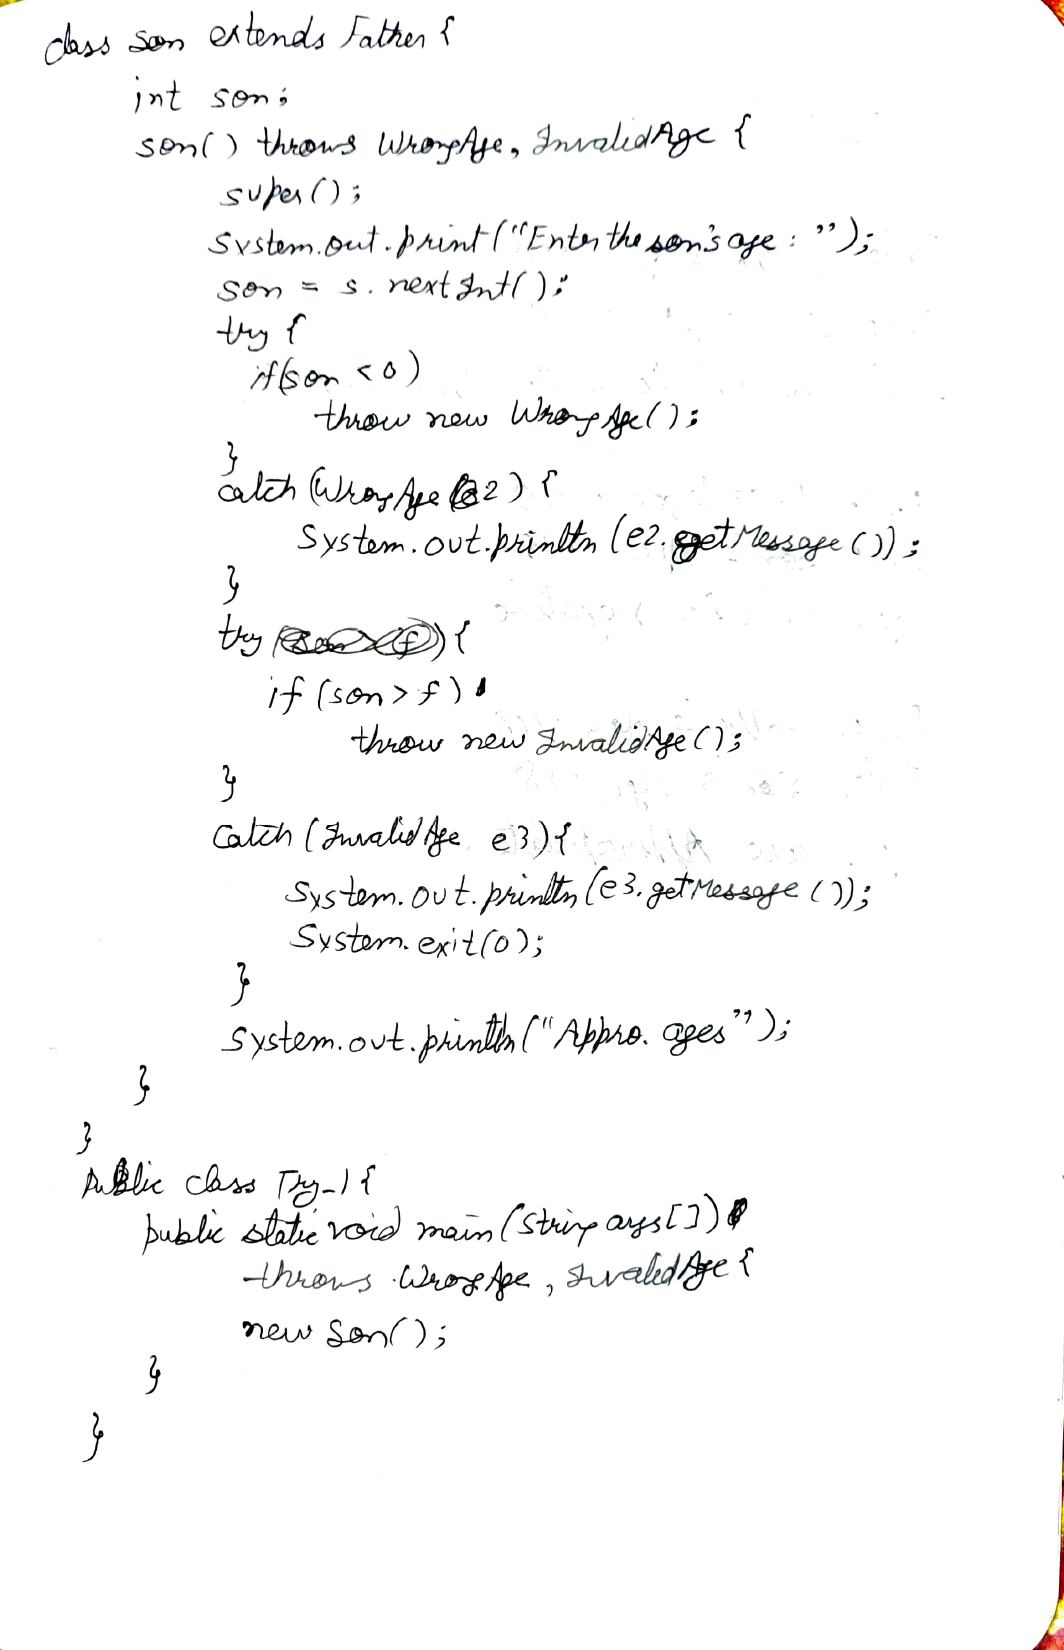 class son extends Father {
int son;
son() throws WrongAge, InvalidAge {
super();
System.out.print("Enter the son's age : ");
son = s.nextInt();
try {
if(son < 0)
throw new WrongAge();
}
catch (WrongAge e2) {
System.out.println(e2.getMessage());
}
try {
if (son > f)
throw new InvalidAge();
}
catch (InvalidAge e3){
System.out.println(e3.getMessage());
System.exit(0);
}
System.out.println("Appro. ages");
}
}
Public class Try_1 {
public static void main(String args[])
throws WrongAge, InvalidAge {
new Son();
}
}